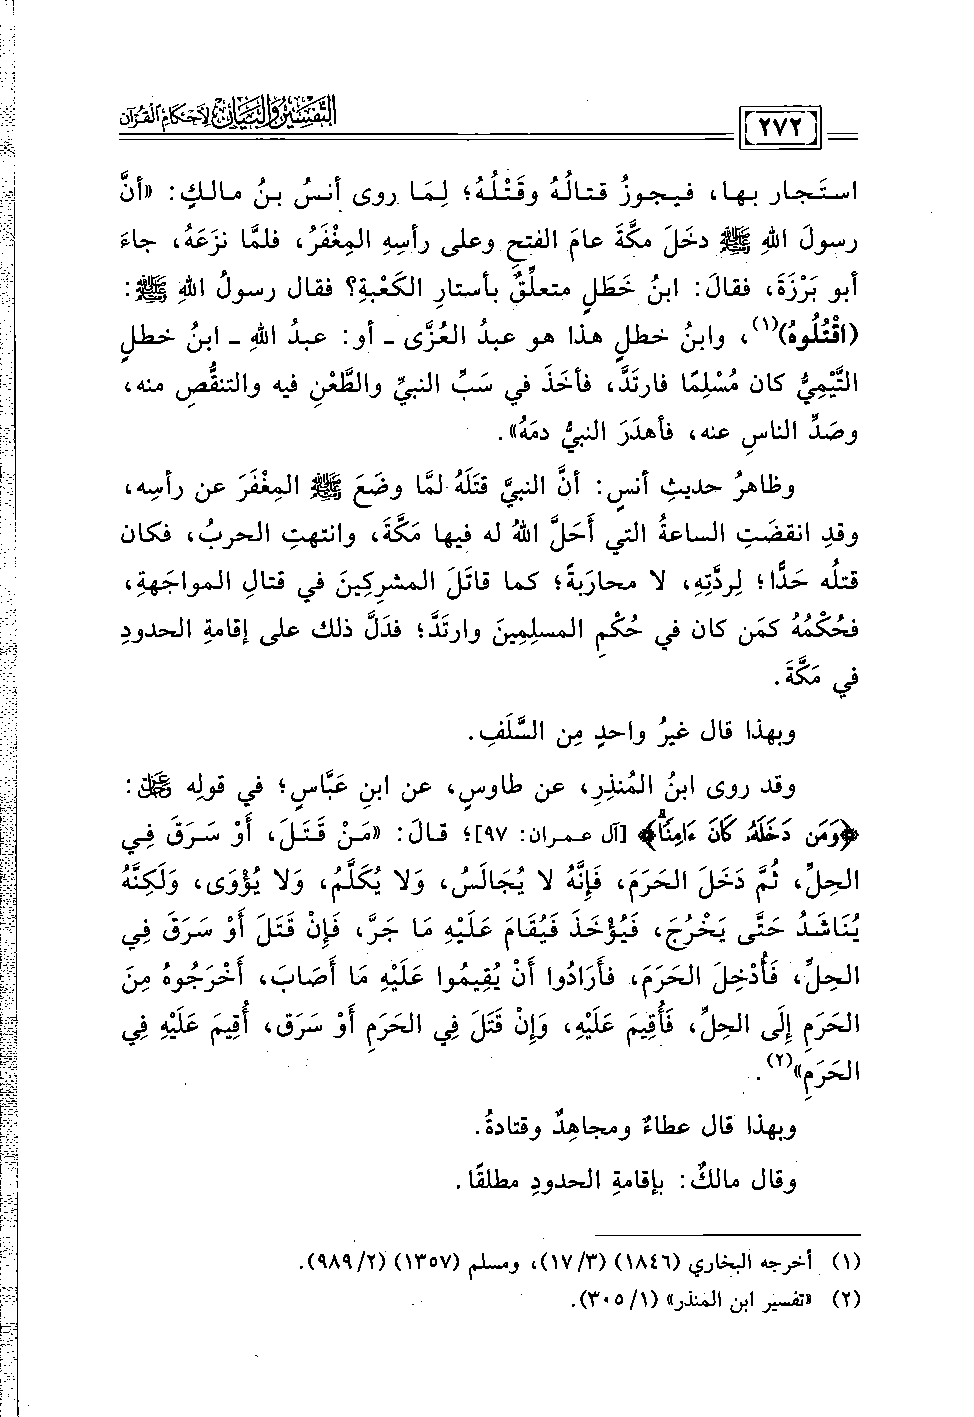 التفسير والبيان لأحكام القرآن
٢٧٢
استَجار بها، فيجوزُ قتالُهُ وقَتْلُهُ؛ لِمَا روى أنسُ بنُ مالكٍ: «أنَّ
رسولَ اللهِ ﷺ دخَلَ مكَّةَ عامَ الفتحِ وعلى رأسِهِ المِغْفَرُ، فلمَّا نزَعَهُ، جاءَ
أبو بَرْزَةَ، فقالَ: ابنُ خَطَلٍ متعلِّقٌ بأستارِ الكَعْبةِ؟ فقال رسولُ اللهِ ﷺ:
(اقْتُلُوهُ)(١)، وابنُ خطلٍ هذا هو عبدُ العُزَّى - أو: عبدُ اللهِ - ابنُ خطلٍ
التَّيْمِيُّ كان مُسْلِمًا فارتَدَّ، فأخَذَ في سَبِّ النبيِّ والطَّعْنِ فيه والتنقُّصِ منه،
وصَدِّ الناسِ عنه، فأهدَرَ النبيُّ دمَهُ».
وظاهرُ حديثِ أنسٍ: أنَّ النبيَّ قتَلَهُ لمَّا وضَعَ ﷺ المِغْفَرَ عن رأسِه،
وقدِ انقضَتِ الساعةُ التي أَحَلَّ اللهُ له فيها مَكَّةَ، وانتهتِ الحربُ، فكان
قتلُه حَدًّا؛ لِرِدَّتِهِ، لا محارَبةً؛ كما قاتَلَ المشرِكِينَ في قتالِ المواجَهةِ،
فحُكْمُهُ كمَن كان في حُكْمِ المسلِمِينَ وارتَدَّ؛ فدَلَّ ذلك على إقامةِ الحدودِ
في مَكَّةَ.
وبهذا قال غيرُ واحدٍ مِن السَّلَفِ.
وقد روى ابنُ المُنذِرِ، عن طاوسٍ، عن ابنِ عَبَّاسٍ؛ في قولِه ﷻ:
﴿وَمَن دَخَلَهُۥ كَانَ ءَامِنًا﴾ [آل عمران: ٩٧]؛ قالَ: «مَنْ قَتَلَ، أَوْ سَرَقَ فِي
الحِلِّ، ثُمَّ دَخَلَ الحَرَمَ، فَإِنَّهُ لا يُجَالَسُ، وَلا يُكَلَّمُ، وَلا يُؤْوَى، وَلَكِنَّهُ
يُنَاشَدُ حَتَّى يَخْرُجَ، فَيُؤْخَذَ فَيُقَامَ عَلَيْهِ مَا جَرَّ، فَإِنْ قَتَلَ أَوْ سَرَقَ فِي
الحِلِّ، فَأُدْخِلَ الحَرَمَ، فَأَرَادُوا أَنْ يُقِيمُوا عَلَيْهِ مَا أَصَابَ، أَخْرَجُوهُ مِنَ
الحَرَمِ إِلَى الحِلِّ، فَأُقِيمَ عَلَيْهِ، وَإِنْ قَتَلَ فِي الحَرَمِ أَوْ سَرَق، أُقِيمَ عَلَيْهِ فِي
الحَرَمِ»(٢).
وبهذا قال عطاءٌ ومجاهِدٌ وقتادةُ.
وقال مالكٌ: بإقامةِ الحدودِ مطلقًا.
(١) أخرجه البخاري (١٨٤٦) (١٧/٣)، ومسلم (١٣٥٧) (٩٨٩/٢).
(٢) «تفسير ابن المنذر» (٣٠٥/١).